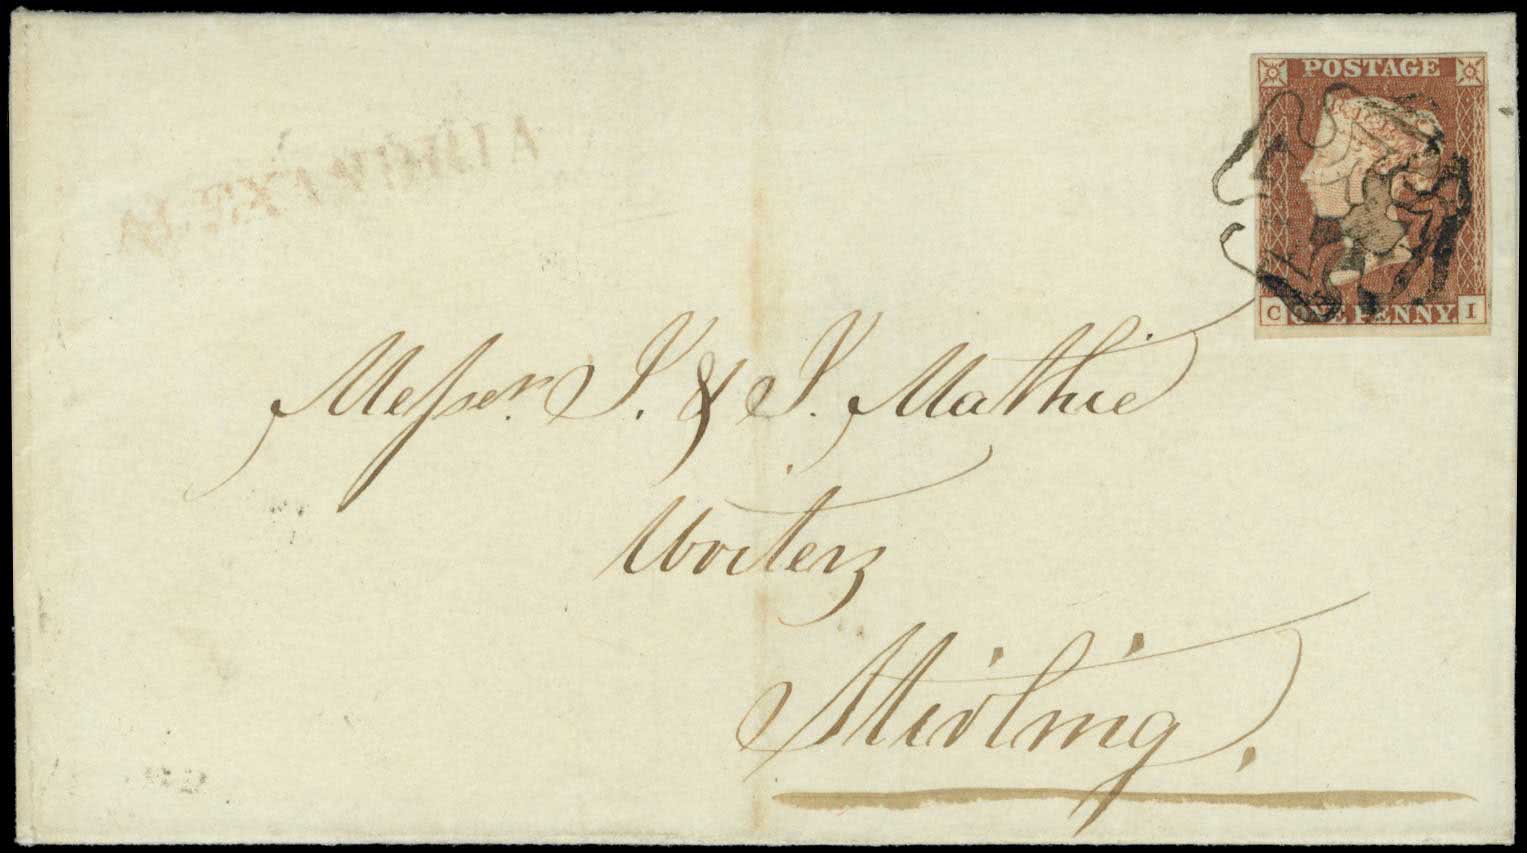 ALEXANDRIA
POSTAGE
C ONE PENNY. I
Messrs. J. & J. Mathie
Writers
Stirling.